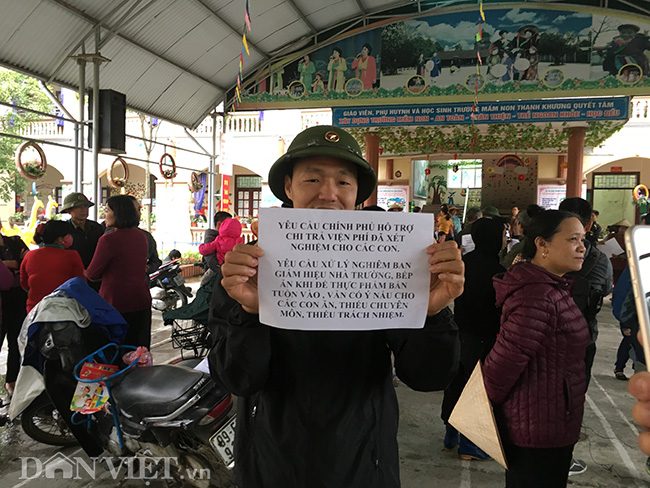 GIÁO VIÊN, PHỤ HUYNH VÀ HỌC SINH TRƯỜNG MẦM NON THANH KHƯƠNG QUYẾT TÂM
XÂY DỰNG TRƯỜNG MẦM NON - AN TOÀN - THÂN THIỆN - TRẺ NGOAN KHỎE - HỌC ĐỀU
YÊU CẦU CHÍNH PHỦ HỖ TRỢ
CHI TRẢ VIỆN PHÍ ĐÃ XÉT
NGHIỆM CHO CÁC CON.
YÊU CẦU XỬ LÝ NGHIÊM BAN
GIÁM HIỆU NHÀ TRƯỜNG, BẾP
ĂN KHI ĐỂ THỰC PHẨM BẨN
TUỒN VÀO , VẪN CỐ Ý NẤU CHO
CÁC CON ĂN, THIẾU CHUYÊN
MÔN, THIẾU TRÁCH NHIỆM.
DÂNVIỆT.vn